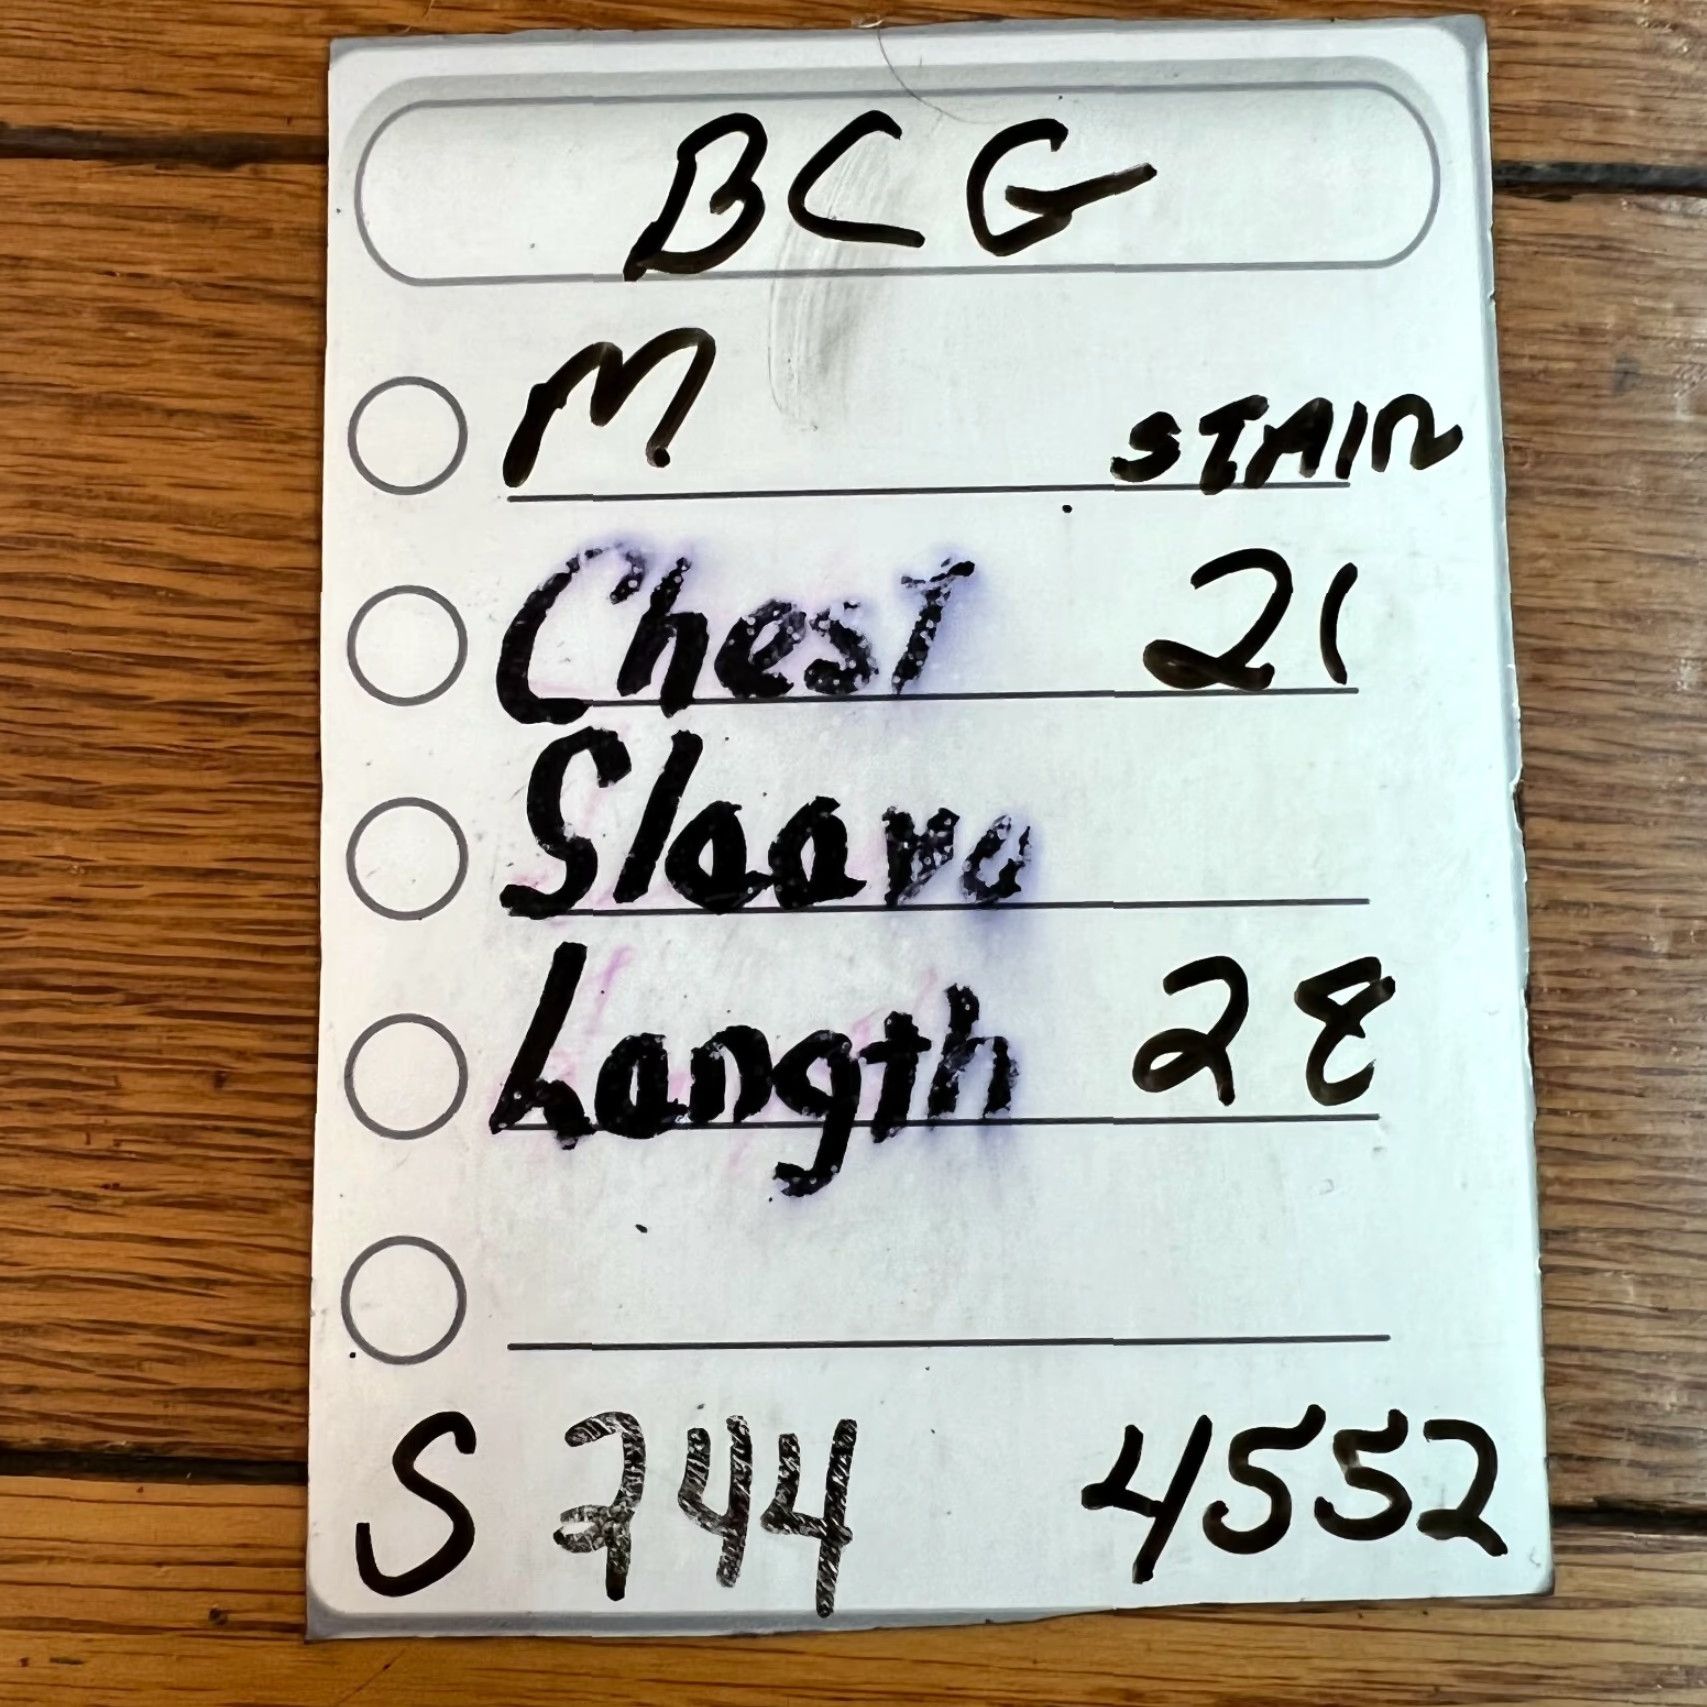 BCG
M STAIN
Chest 21
Sleeve
Length 28
S 744 4552